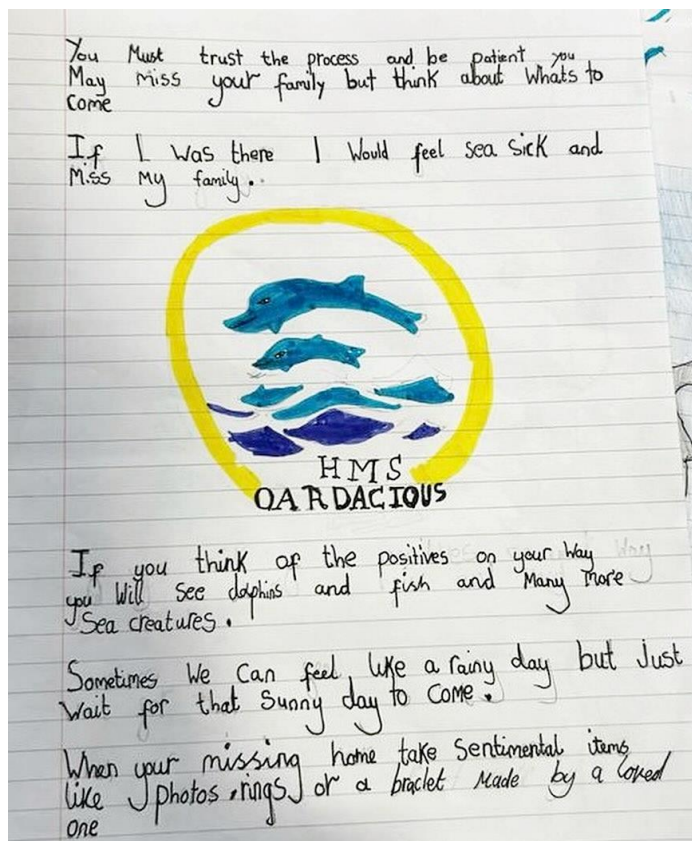 You Must trust the process and be patient you
May miss your family but think about whats to
come
If I was there I would feel sea sick and
Miss My family.
HMS
OARDACIOUS
If you think of the positives on your way
you Will See dolphins and fish and Many more
Sea creatures.
Sometimes We Can feel like a rainy day but just
wait for that Sunny day to Come.
When your missing home take Sentimental items
like photos, rings, or a braclet Made by a loved
one